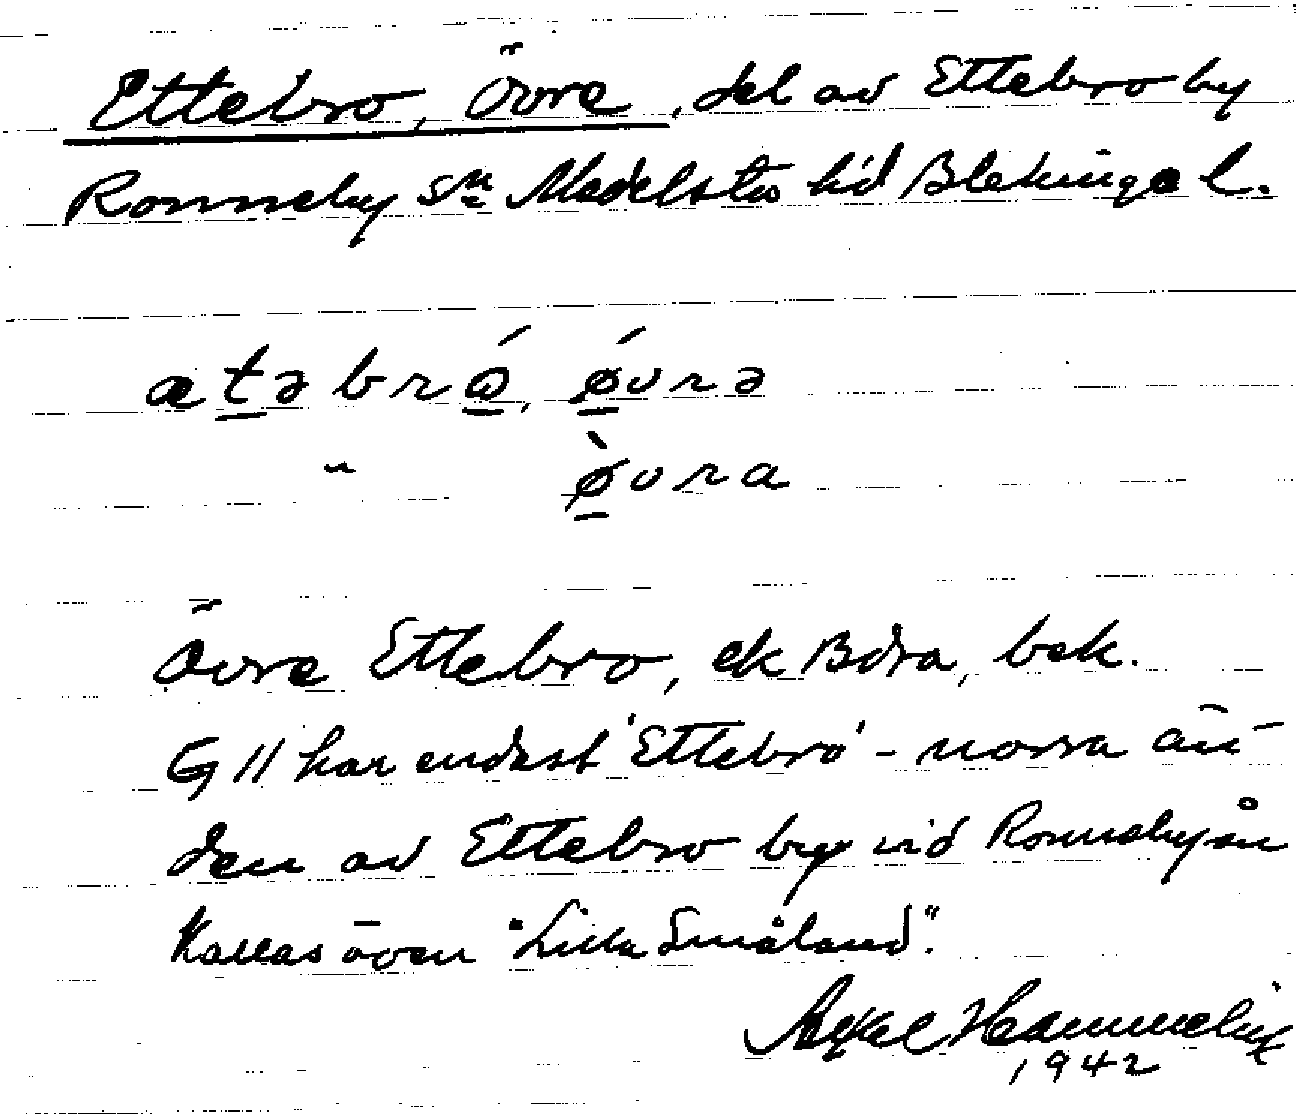 Ettebro, Övre, del av Ettebro by
Ronneby sn Medelsta hd Blekinge l.
ætəbró, ǿvrə
" ø̀vra
Övre Ettebro, ek Böra, bek.
G II har endast 'Ettebro' - norra än-
den av Ettebro by vid Ronnebyån
Kallas även "Lilla Småland".
Axel
1942